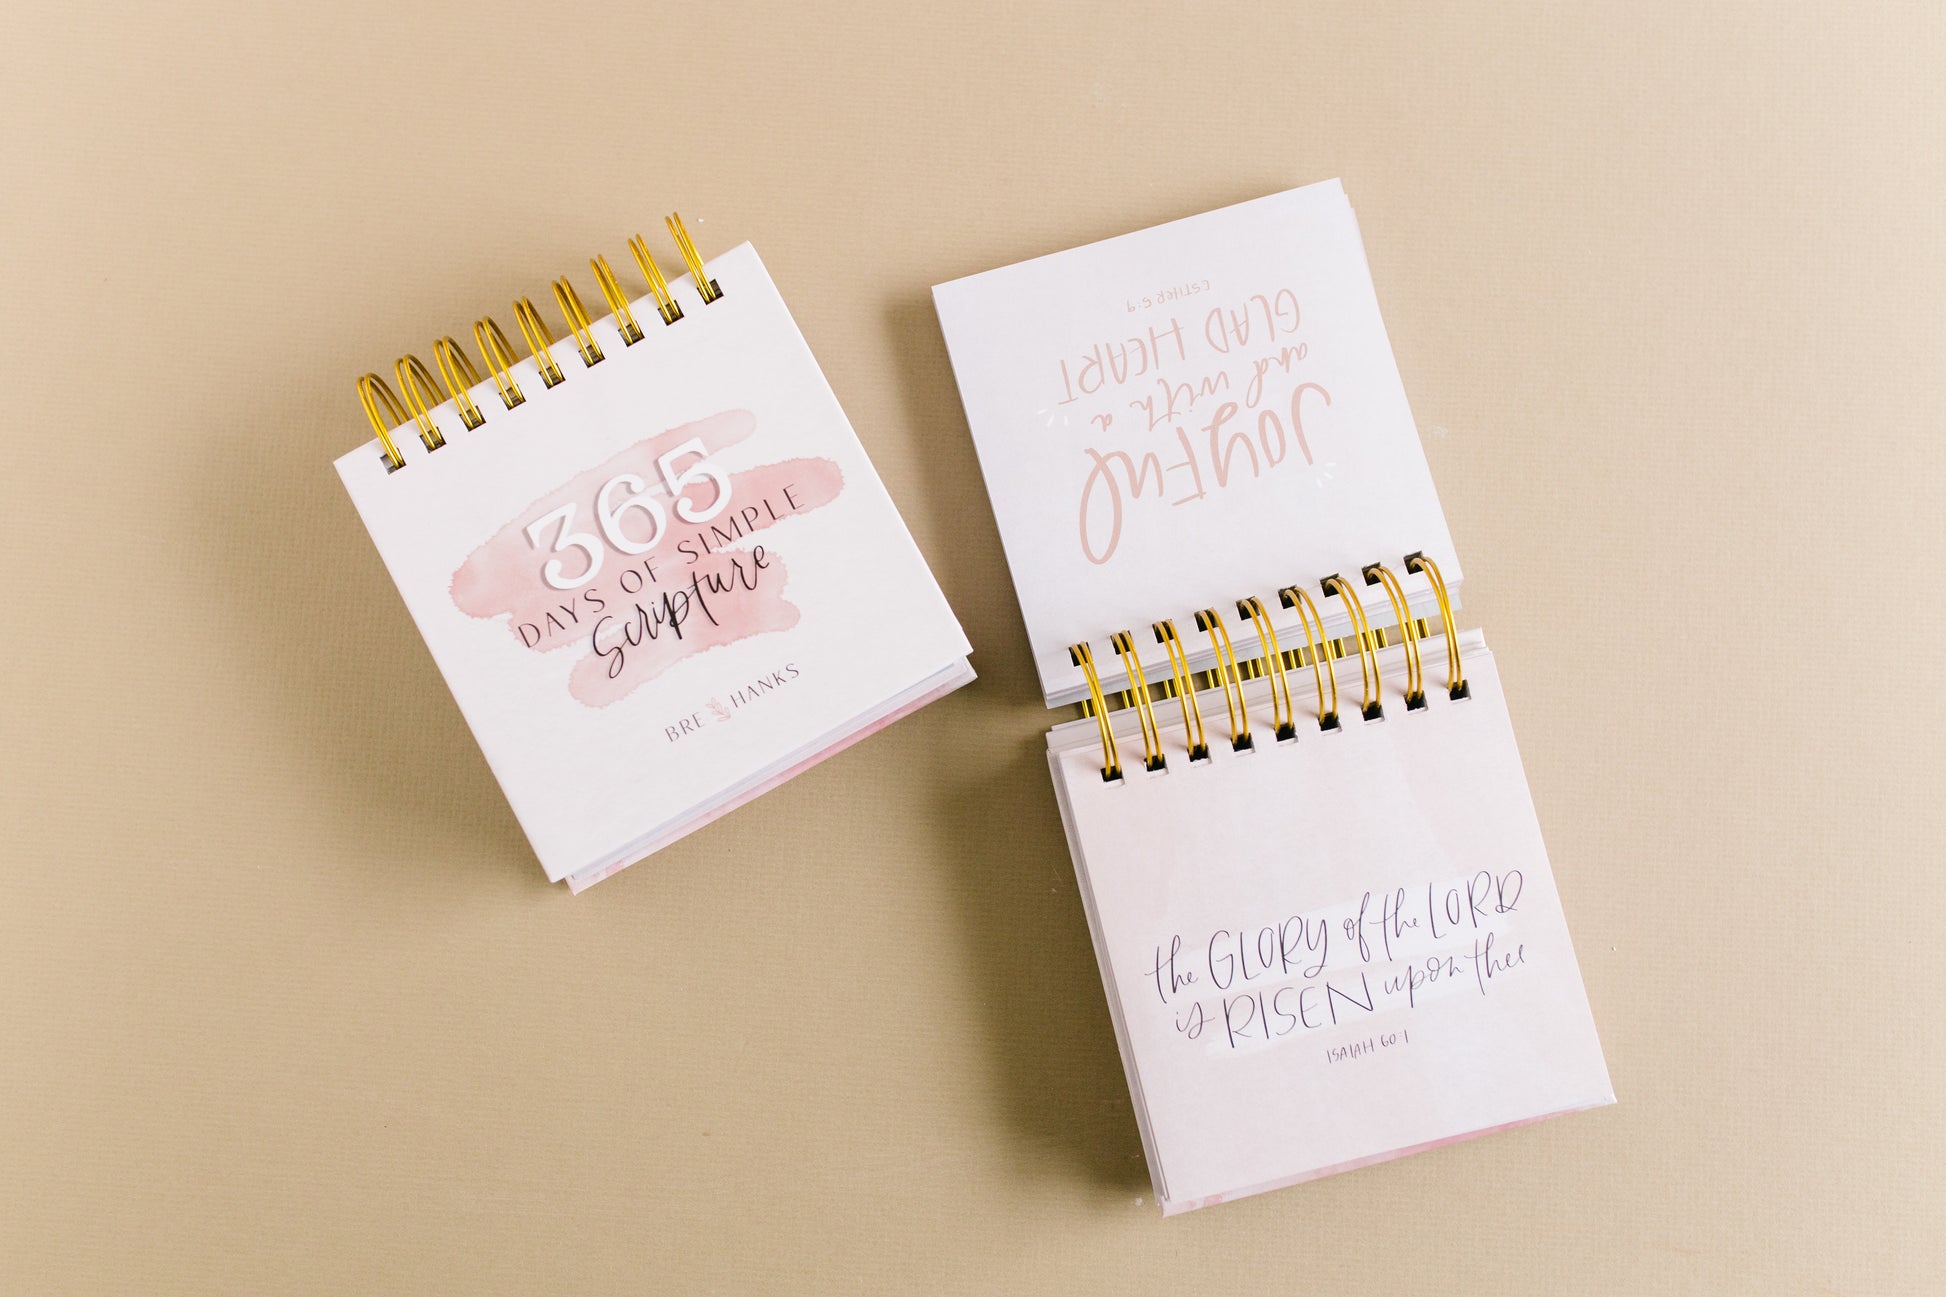 365
DAYS OF SIMPLE
Scripture
BRE HANKS
JOYFUL
and with a
GLAD HEART
ESTHER 5:9
the GLORY of the LORD
is RISEN upon thee
ISAIAH 60:1